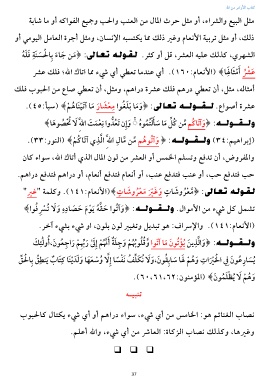 كتاب الأرض لله
مثل البيع والشراء، أو مثل حرث المال من العنب والحب وجميع الفواكه أو ما شابة
ذلك، أو مثل تربية الأنعام وغير ذلك مما يكتسبه الإنسان. ومثل أجرة العامل اليومي أو
الشهري، كذلك عليه العشر، قل أو كثر. لقوله تعالى: ﴿مَن جَاءَ بِالْحَسَنَةِ فَلَهُ
عَشْرُ أَمْثَالِهَا﴾ (الأنعام: ١٦٠). أي عندما تعطي أي شيء مما اتاك الله؛ فلك عشر
أمثاله، مثل، أن تعطي درهم فلك عشرة دراهم، ومثل، أن تعطي صاع من الحبوب فلك
عشرة أصواع. لقوله تعالى: ﴿وَمَا بَلَغُوا مِعْشَارَ مَا آتَيْنَاهُمْ﴾ (سبأ: ٤٥).
ولقوله: ﴿وَآتَاكُم مِّن كُلِّ مَا سَأَلْتُمُوهُ وَإِن تَعُدُّوا نِعْمَتَ اللَّهِ لَا تُحْصُوهَا﴾
(إبراهيم: ٣٤) ولقوله: ﴿وَآتُوهُم مِّن مَّالِ اللَّهِ الَّذِي آتَاكُمْ﴾ (النور: ٣٣).
والمفروض، أن تدفع وتسلم الخمس أو العشر من لون المال الذي أتاك الله، سواء كان
حب فتدفع حب، أو عنب فتدفع عنب، أو أنعام فتدفع أنعام، أو دراهم فتدفع دراهم.
لقوله تعالى: ﴿مَّعْرُوشَاتٍ وَغَيْرَ مَعْرُوشَاتٍ﴾ (الأنعام: ١٤١). وكلمة "غير"
تشمل كل شيء من الأموال. ولقوله: ﴿وَآتُوا حَقَّهُ يَوْمَ حَصَادِهِ وَلَا تُسْرِفُوا﴾
(الأنعام: ١٤١). والإسراف: هو تبديل وتغيير لون بلون، او شيء بشيء آخر.
ولقوله: ﴿وَالَّذِينَ يُؤْتُونَ مَا آتَوا وَّقُلُوبُهُمْ وَجِلَةٌ أَنَّهُمْ إِلَى رَبِّهِمْ رَاجِعُونَ، أُولَئِكَ
يُسَارِعُونَ فِي الْخَيْرَاتِ وَهُمْ لَهَا سَابِقُونَ، وَلَا نُكَلِّفُ نَفْسًا إِلَّا وُسْعَهَا وَلَدَيْنَا كِتَابٌ يَنطِقُ بِالْحَقِّ
وَهُمْ لَا يُظْلَمُونَ﴾ (المؤمنون: ٦٠، ٦١، ٦٢).
تنبيه
نصاب الغنائم هو: الخامس من أي شيء، سواء دراهم أو أي شيء يكتال كالحبوب
وغيرها، وكذلك نصاب الزكاة: العاشر من أي شيء، والله أعلم.
37